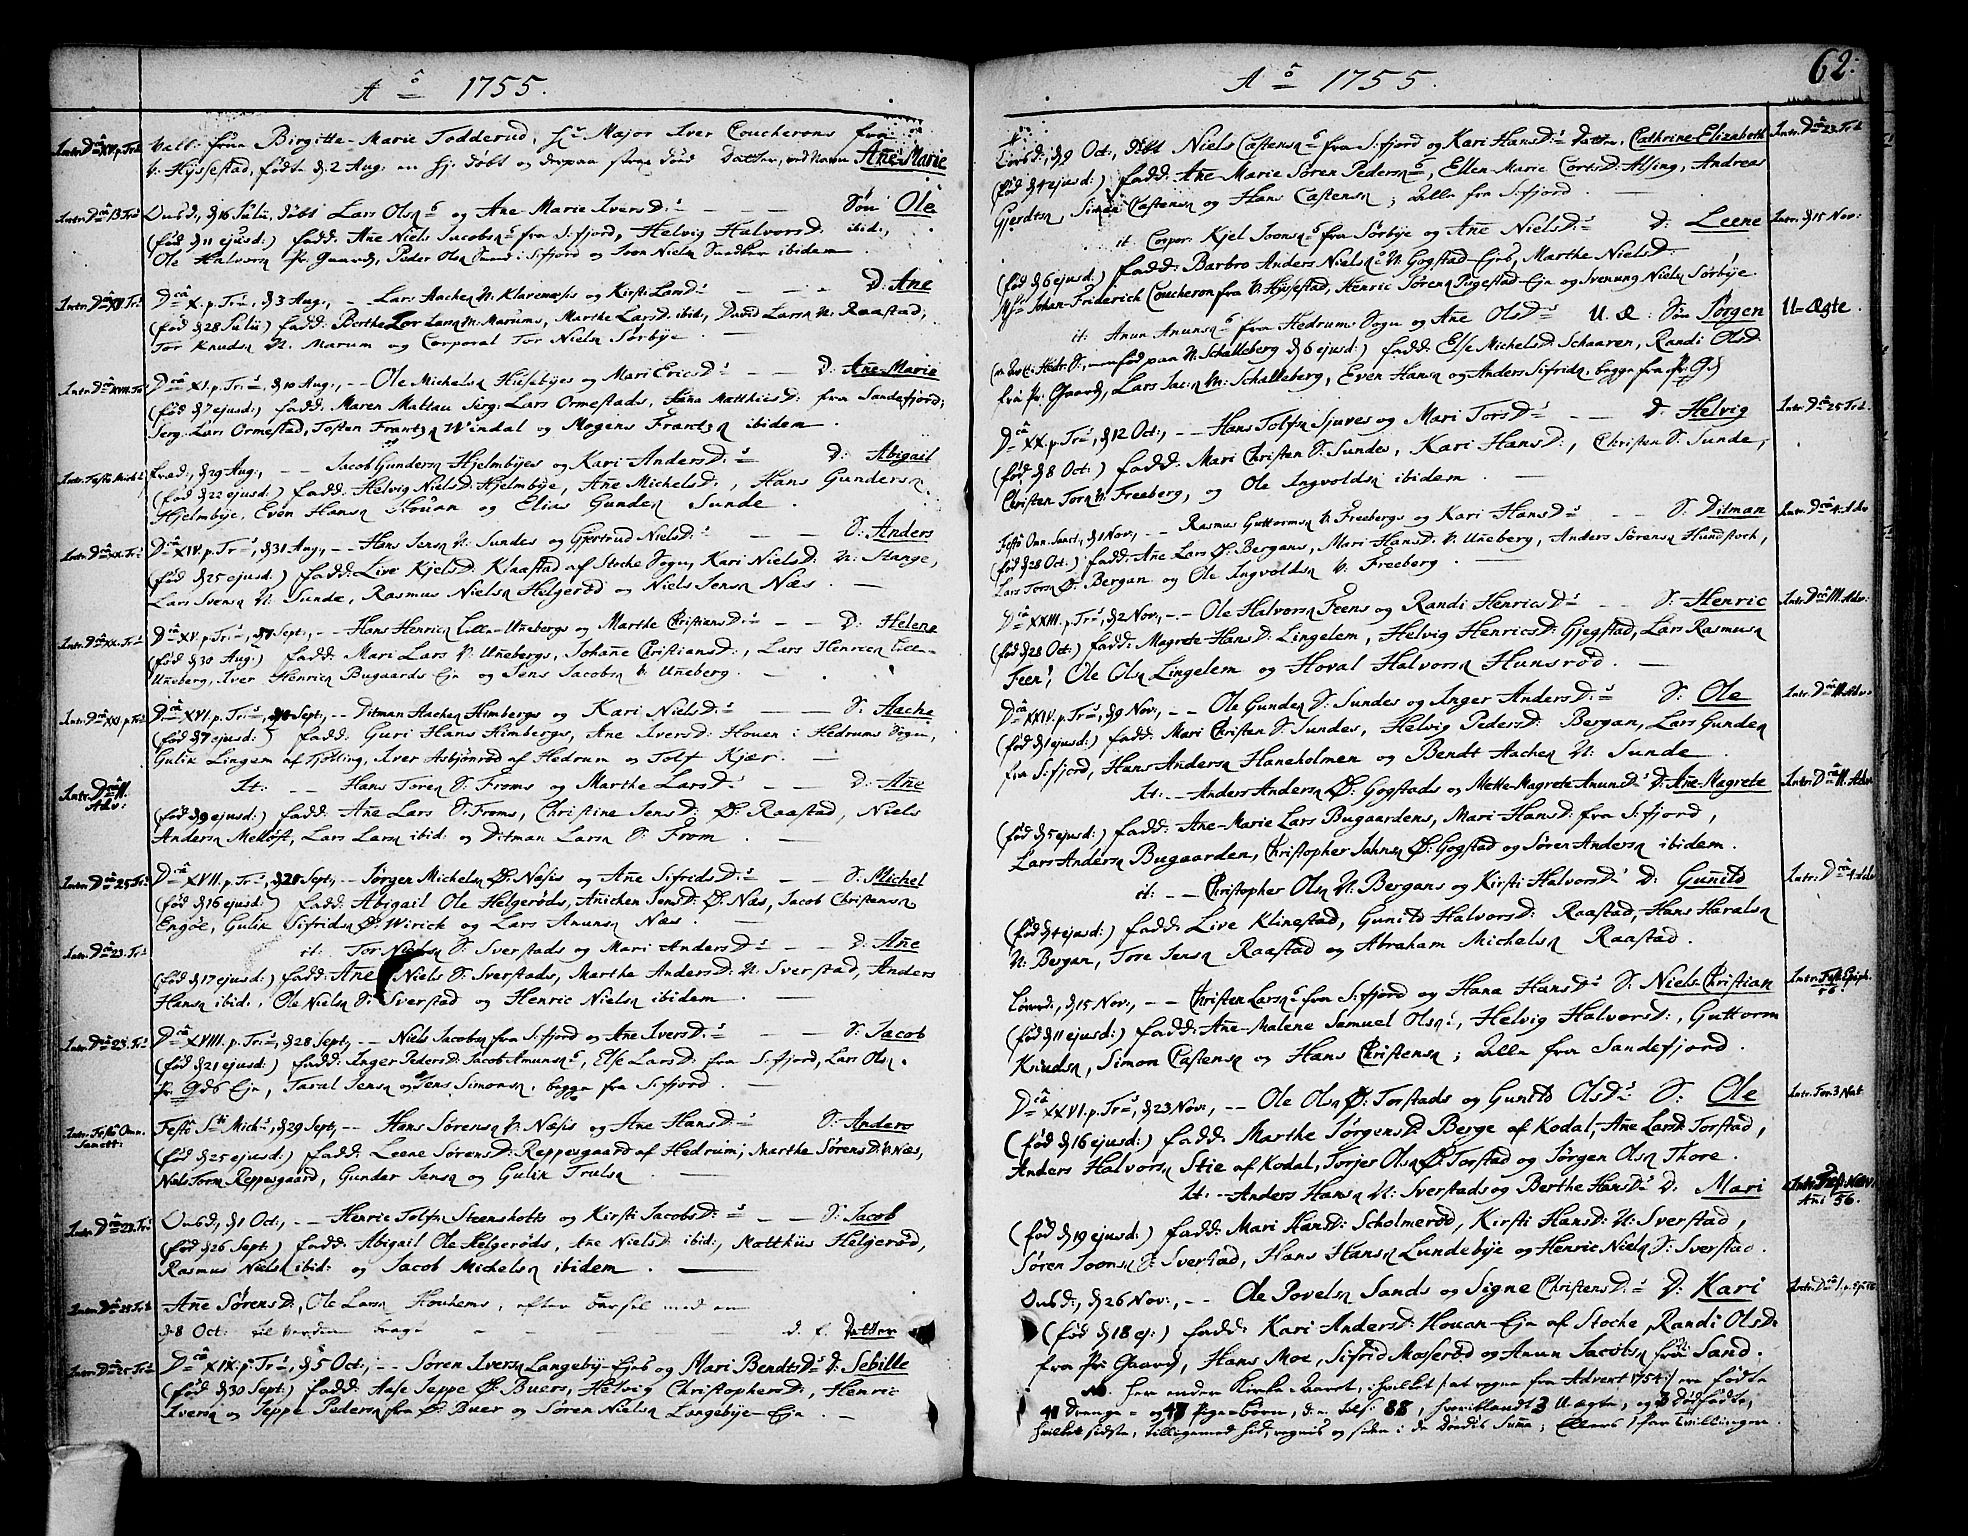 Aº 1755.
Intr: Dca XV. p. Tr:
Velb: frua Birgitte-Marie Todderud, Hr Major Iver Coucherons frue
V: Hyssestad, fødte d. 2 Aug. en hj. døbt og derpaa strax død Datter, ved Navn Añe-Marie
Intr: Dca 13. Tr:
Onsd, d. 16 Julii, døbt Lars Olsøs og Ane-Marie Ivers D: Søn Ole
(fød d. 11 ejusd:) fadd: Añe Niels Jacobsøs fra S:fjord, Helvig Halvors D: ibid:,
Ole Halvorsn Pr. Gaard, Peder Olsn Smed i S:fjord og Joen Nielsn Snedker ibidem
Intr: Dca XV. Tr:
Dca X. p. Tr:, d. 3 Aug, - Lars Aachesn N: Klavenæsis og Kirsti Lars D: D: Ane
(fød d. 28 Julii) fadd: Berthe Lor Larsn N: Marums, Marthe Lars D: ibid:, David Larsn N: Raastad,
Tor Knudsn N: Marum og Corporal Tor Nielsn Sørbye.
Intr: Dca XVII. Tr:
Dca XI. p. Tr:, d. 10 Aug:, - Ole Michelsn Husebyes og Mari Erics D: D: Añe-Marie
(fød d. 7 ejusd:) fadd: Maren Maltau Serg: Lars Ormestads, Hana Matthiis D: fra Sandefjord;
Serg: Lars Ormestad, Tosten Frantzn Windal og Mogens Frantzn ibidem.
Intr: Festo Mich:
Fred: d. 29 Aug:, - - Jacob Gundersn Hjelmbyes og Kari Anders D: D: Abigail
(fød d. 22 ejusd:) fadd: Helvig Niels D: Hjelmbye, Ane Michels D:, Hans Gundersn
Hjelmbye, Even Hansn Skouan og Elias Gundersn Sunde.
Intr: Dca XX. Tr:
Dca XIV. p. Tr:, d. 31 Aug, - Hans Jensn N: Sundes og Gjertrud Niels D: S: Anders
(fød d. 25 ejusd:) fadd: Live Kjels D: Klaastad af Stocke Sogn, Kari Niels D: N: Stange,
Lars Svensn N: Sunde, Rasmus Nielsn Helgerød og Niels Jensn Næs.
Intr: Dca XX. Tr:
Dca XV. p. Tr:, d. 7 Sept:, - Hans Henricsn Lille-Unebergs og Marthe Christians D: D: Helene
(fød d. 30 Aug:) fadd: Mari Lars V: Unebergs, Johañe Christians D:, Lars Henricsn Lille-
Uñeberg, Iver Henricsn Bugaards Eje og Jens Jacobsn V: Uneberg.
Intr: Dca XXI. p. Tr:
Dca XVI. p. Tr:, d. 14 Sept:, - Ditman Aachesn Himbergs og Kari Niels D: S: Aache
(fød d. 7 ejusd:) fadd: Guri Hans Himbergs, Ane Ivers D: Houen i Hedrums Sogn,
Gulik Lingem af Tjølling, Iver Asbjønrød af Hedrum og Tolf Kjær.
Intr: Dca II. Adv:
It: - - Hans Toresn S: Froms og Marthe Lars D: D: Añe
(fød d. 9 ejusd:) fadd: Añe Lars S: Froms, Christine Jens D: Ø: Raastad, Niels
Andersn Melløst, Lars Larsn ibid: og Ditman Larsn S: From.
Intr: Dca 25. Tr:
Dca XVII. p. Tr:, d. 21 Sept:, - Jørgen Michelsn Ø: Næsis og Añe Sifrids D: S: Michel
(fød d. 16 ejusd:) fadd: Abigail Ole Helgerøds, Anichen Jens D: Ø: Næs, Jacob Christensn
Engøe, Gulik Sifridsn Ø: Wirich og Lars Anunsn Næs.
Intr: Dca 23. Tr:
it: Tor Nielsn S: Sverstads og Mari Anders D: D: Añe
(fød d. 17 ejusd:) fadd: Añe Niels S: Sverstads, Marthe Anders D: N: Sverstad, Anders
Hansn ibid:, Ole Nielsn S: Sverstad og Henric Nielsn ibidem.
Intr: Dca 23. Tr:
Dca XVIII. p. Tr:, d. 28 Sept:, - Niels Jacobsn fra S:fjord og Añe Ivers D: S: Jacob
(fød d. 21 ejusd:) fadd: Inger Peders D: Jacob Amunsøs, Else Lars D: fra S:fjord, Lars Olsn
Pr. Gds Eje, Taral Jensn og Jens Simonsn, begge fra S:fjord.
Intr: Festo Omn. Sanctt:
Festo Sti Mich:, d. 29 Sept:, - Hans Sørensn N: Næsis og Ane Hans D: S: Anders
(fød d. 25 ejusd:) fadd: Leene Sørens D: Reppesgaard af Hedrum, Marthe Sørens D: N: Næs,
Niels Torsn Reppesgaard, Gunder Jensn og Gulik Trulsn.
Intr: Dca 23. Tr:
Onsd:, d. 1 Oct:, - - Henric Tolfsn Steensholts og Kirsti Jacobs D: S: Jacob
(fød d. 26 Sept:) fadd: Abigail Ole Helgerøds, Ane Niels D: ibid:, Matthiis Helgerød,
Rasmus Nielsn ibid: og Jacob Michelsn ibidem.
Añe Sørens D:, Ole Larsn Houkems, efter
d. 8 Oct: til Verden bragt d. f. Datter
Intr: Dca 25. Tr:
Dca XIX. p. Tr:, d. 5 Oct:, - - Søren Iversn Langeby-Ejes og Mari Bendts D: D: Sebille
(fød d. 30 Sept:) fadd: Aase Jeppe Ø: Buers, Helvig Christophers D:, Henric
Iversn og Jeppe Pedersn fra Ø: Buer og Søren Nielsn Langebye-Eje.
Aº 1755.
62.
Løverd:, d. 9 Oct:, døbt Niels Castensøs fra S:fjord og Kari Hans D: Datter, Cathrine-Elizabeth
Intr: Dca 23. Tr:
(fød d. 4 ejusd:) fadd: Ane-Marie Søren Pedersøs, Ellen-Marie Corts D: Alsing, Andreas
Gjerdtsn, Simon Castensn og Hans Castensn; Alle fra S:fjord.
it: Corpor: Kjel Joonsøs fra Sørbye og Añe Niels D: D: Leene
Intr: d. 15 Nov:
(fød d. 6 ejusd:) fadd: Barbro Anders Nielsøs N: Gogstad-Ejes, Marthe Niels D:
Msr Johan-Friderich Coucheron fra V: Hyssestad, Henric Sørensn Pugestad-Eje og Svenung Nielsn Sørbye.
it: Anun Anunsøs fra Hedrums Sogn og Añe Ols D: U. Æ: Søn Jørgen
U-Ægte.
fød paa N: Schalleberg d. 6 ejusd:) fadd: Else Michels D: Schaaren, Randi Ols D:
fra Pr. Gaard, Lars Jacsn N: Schalleberg, Even Hansn og Anders Sifridsn, begge fra Pr. Gd
Dca XX. p. Tr:, d. 12 Oct:, - - Hans Tolfsn Sjuves og Mari Tors D: D: Helvig
Intr: Dca 25 Tr:
(fød d. 8 Oct:) fadd: Mari Christen S: Sundes, Kari Hans D:, Christen S: Sunde,
Christen Torsn V: Freeberg, og Ole Ingvoldsn ibidem.
Festo Omn. Sanct:, d. 1 Nov:, - - Rasmus Guttormsn V: Freebergs og Kari Hans D: S: Ditman
Intr: Dca 4. Adv:
(fød d. 28 Oct:) fadd: Ane Lars Ø: Bergans, Mari Hans D: V: Uñeberg, Anders Sørensn Hundstoch,
Lars Torsn Ø: Bergan og Ole Ingvoldsn V: Freeberg.
Dca XXIII. p. Tr:, d. 2 Nov:, - - Ole Halvorsn Feens og Randi Henrics D: S: Henric
Intr: Dca III. Adv:
(fød d. 28 Oct:) fadd: Magrete Hans D: Lingelem, Helvig Henrics D: Gjegstad, Lars Rasmusn
Feen, Ole Olsn Lingelem og Hoval Halvorsn Hunsrød.
Dca XXIV. p. Tr:, d. 9 Nov:, - - Ole Gundersn S: Sundes og Inger Anders D: S: Ole
Intr: Dca II. Adv:
(fød d. 1 ejusd:) fadd: Mari Christen S: Sundes, Helvig Peders D: Bergan, Lars Gundersn
fra S:fjord, Hans Andersn Haneholmen og Bendt Aachesn N: Sunde.
It: - - Anders Andersn Ø: Gogstads og Mette-Magrete Anuns D: D: Añe-Magrete
Intr: Dca II. Adv:
(fød d. 5 ejusd:) fadd: Ane-Marie Lars Bugaardens, Mari Hans D: fra S:fjord,
Lars Andersn Bugaarden, Christopher Jahnsn Ø: Gogstad og Søren Andersn ibidem.
it: - - Christopher Olsn N: Bergans og Kirsti Halvors D: D: Gunild
Intr: Dca 4. Adv:
(fød d. 4 ejusd:) fadd: Live Klinestad, Gunild Halvors D: Raastad, Hans Haralsn
N: Bergan, Tore Jensn Raastad og Abraham Michelsn Raastad.
Løverd:, d. 15 Nov:, - - Christen Larsøs fra S:fjord og Hana Hans D: S: Niels-Christian
Intr: Fest: Epiph: 56.
(fød d. 11 ejusd:) fadd: Ane-Malene Samuel Olsøs, Helvig Halvors D:, Guttorm
Knudsn, Simon Castensn og Hans Christensn; Alle fra Sandefjord.
Dca XXVI. p. Tr:, d. 23 Nov:, - - Ole Olsn Ø: Torstads og Gunild Ols D: S: Ole
Intr: Fer: 3 Nat:
(fød d. 16 ejusd:) fadd: Marthe Jørgens D: Berge af Kodal, Añe Lars D: Torstad,
Anders Halvorsn Stie af Kodal, Torjes Olsn Ø: Torstad og Jørgen Olsn Thore.
It: - Anders Hansn N: Sverstads og Berthe Hans D: D: Mari
Ani 56.
(fød d. 19 ejusd:) fadd: Mari Hans D: Scholmerød, Kirsti Hans D: N: Sverstad,
Søren Joonsn S: Sverstad, Hans Hansn Lundebye og Henric Nielsn S: Sverstad.
Onsd:, d. 26 Nov:, - - Ole Povelsn Sands og Signe Christens D: D: Kari
(fød d. 18 ej:) fadd: Kari Anders D: Houan-Eje af Stocke, Randi Ols D:
fra Pr: Gaard, Hans Moe, Sifrid Moserød og Anun Jacobsn fra Sand.
NB. her ender Kirke-Aaret, i hvilket /: at regne fra Advent 1754 :/ ere fødte
41 Drenge- og 47 Pige-Børn, der iblandt 3 U-Ægte, og 3 dødfødte,